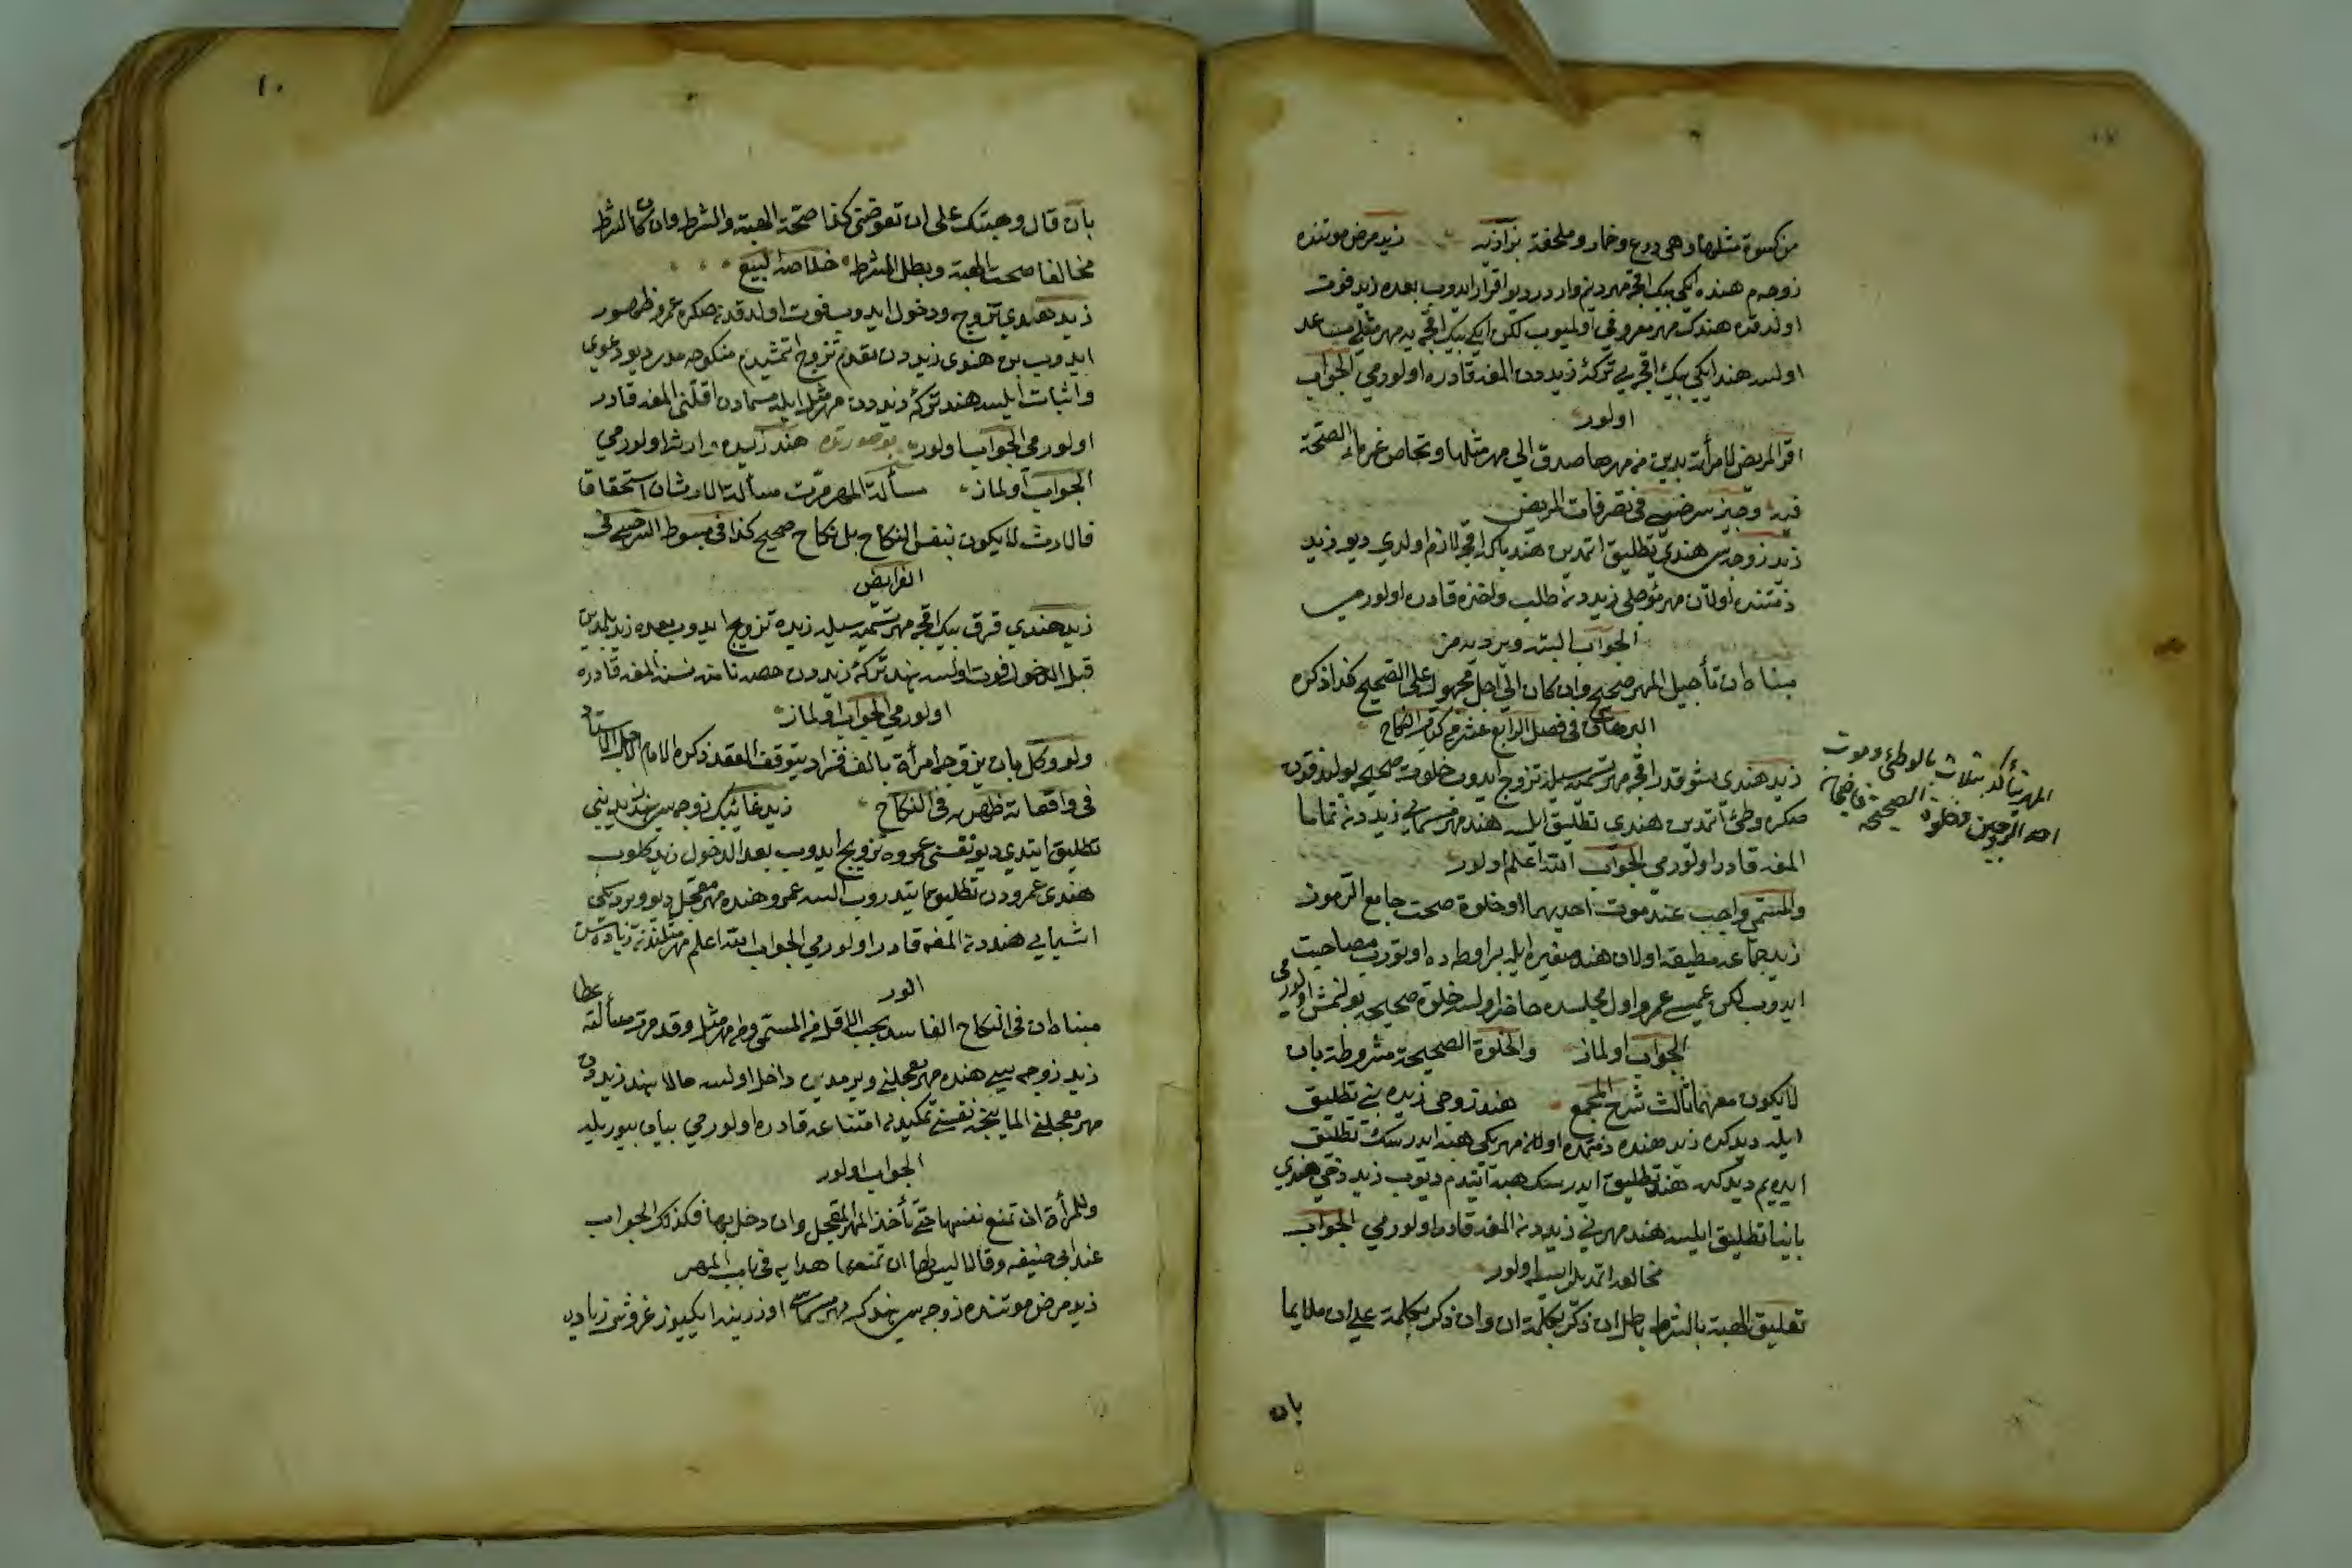 من كسوة مثلها وهي درع وخمار وملحفة بزازيه زيد مرض موتنده
زوجه م هنده ايكي بيك اقچه مهر دينم واردر ديو اقرار ايدوب بعده زيد فوت
اولدقده هندك مهر معروفي اولميوب لكن ايكي بيك اقچه يه مهر مثلي مساعد
اولسه هند ايكي بيك اقچه يي تركۀ زيددن المغه قادره اولورمي الجواب
اولور
اقر المريض لامرأته بدين من مهرها صدق الي مهر مثلها وتحاص غرماء الصحة
فيه وجيز سرخسي في تصرفات المريض
زيد زوجه سي هندي تطليق اتمدين هند باكا اقچه لازم اولدي ديو زيد
ذمتنده اولان مهر مؤجلي زيددن طلب واخذه قادره اولورمي
الجواب البته ويرديرمز
مبناه ان تأجيل المهر صحيح وان كان الي اجل مجهول على الصحيح كذا ذكره
البرهاني في فصل الرابع عشر من كتاب النكاح
زيد هندي شو قدر اقچه مهر تسميه سيله تزوج ايدوب خلوت صحيحه بولندقدن
صكره وطئ اتمدين هندي تطليق ايلسه هند مهر مسمايي زيددن تماما
المغه قادر اولورمي الجواب الله اعلم اولور
والمسمى واجب عند موت احديهما او خلوة صحت جامع الرموز
زيد جماعه مطيقه اولان هند صغيره ايله بر اوطه ده اوتورب مصاحبت
ايدوب لكن عميسي عمرو اول مجلسده حاضر اولسه خلوة صحيحه بولنمش اولورمي
الجواب اولماز والخلوة الصحيحة مشروطة بان
لا يكون معهما ثالث شرح المجمع هند زوجي زيده بني تطليق
ايله ديدكده زيد هنده ذمتمده اولان مهريكي هبه ايدرسك تطليق
ايدەيم ديدكده هند تطليق ايدرسك هبه ايتدم ديوب زيد دخي هندي
باينا تطليق ايلسه هند مهريني زيددن المغه قادر اولورمي الجواب
مخالعه اتمديلر ايسه اولور
تعليق الهبة بالشرط باطل ان ذكر بكلمة ان وان ذكر بكلمة على ان ملايما
بان
المهر يتأكد بثلاث بالوطئ وموت
احد الزوجين وخلوة الصحيحة قاضيخان
١٠
بان قال وهبتك على ان تعوضني كذا صحة الهبة والشرط وان كان الشرط
مخالفا صحت الهبة وبطل الشرط خلاصة البيع
زيد هندي تزوج ودخول ايدوب فوت اولدقدن صكره عمرو ظهور
ايدوب بن هندى زيددن مقدم تزوج اتمشيدم منكوحه مدر ديو دعوي
واثبات ايلسه هند تركۀ زيددن مهر مثل ايله مسمادن اقلني المغه قادر
اولورمي الجواب اولور بو صورتده هند زيده وارث اولورمي
الجواب اولماز مسألة المهر مرت مسألة الارث ان استحقاق
الارث لا يكون بنفس النكاح بل نكاح صحيح كذا في مبسوط السرخسي في
الفرايض
زيد هندي قرق بيك اقچه مهر تسميه سيله زيده تزويج ايدوب بعده زيد بلمدين
قبل الدخول فوت اولسه هند تركۀ زيددن حصه ثامنه سنه المغه قادره
اولورمي الجواب اولماز
ولو وكل بان يزوجه امرأة بالف فزاد يتوقف العقد ذكره الامام الاستاد
في واقعاته ظهيريه في النكاح زيد غائبك زوجه سي هند زيد بني
تطليق ايتدي ديو نفسني عمروه تزويج ايدوب بعد الدخول زيد كلوب
هندي عمرودن تطليق ايتدروب السه عمرو هنده مهر معجل ديو ويرديكي
اشيايي هنددن المغه قادر اولورمي الجواب الله اعلم مهر مثلندن زياده سن
الور عطا
مبناه ان في النكاح الفاسد يجب الاقل من المسمى ومن مهر مثل وقد مرت مسألته
زيد زوجه سي هنده مهر معجلني ويرمدين داخل اولسه حالا هند زيددن
مهر معجلني الماينجه نفسني تمكيندن امتناعه قادره اولورمي بيان بيوريله
الجواب اولور
وللمرأة ان تمنع نفسها حتى تأخذ المهر المعجل وان دخل بها فكذلك الجواب
عند ابي حنيفه وقالا ليس لها ان تمنعها هدايه في باب المهر
زيد مرض موتنده زوجه سي هندك مهر مسماسي اوزرينه ايكييوز غروش زياده